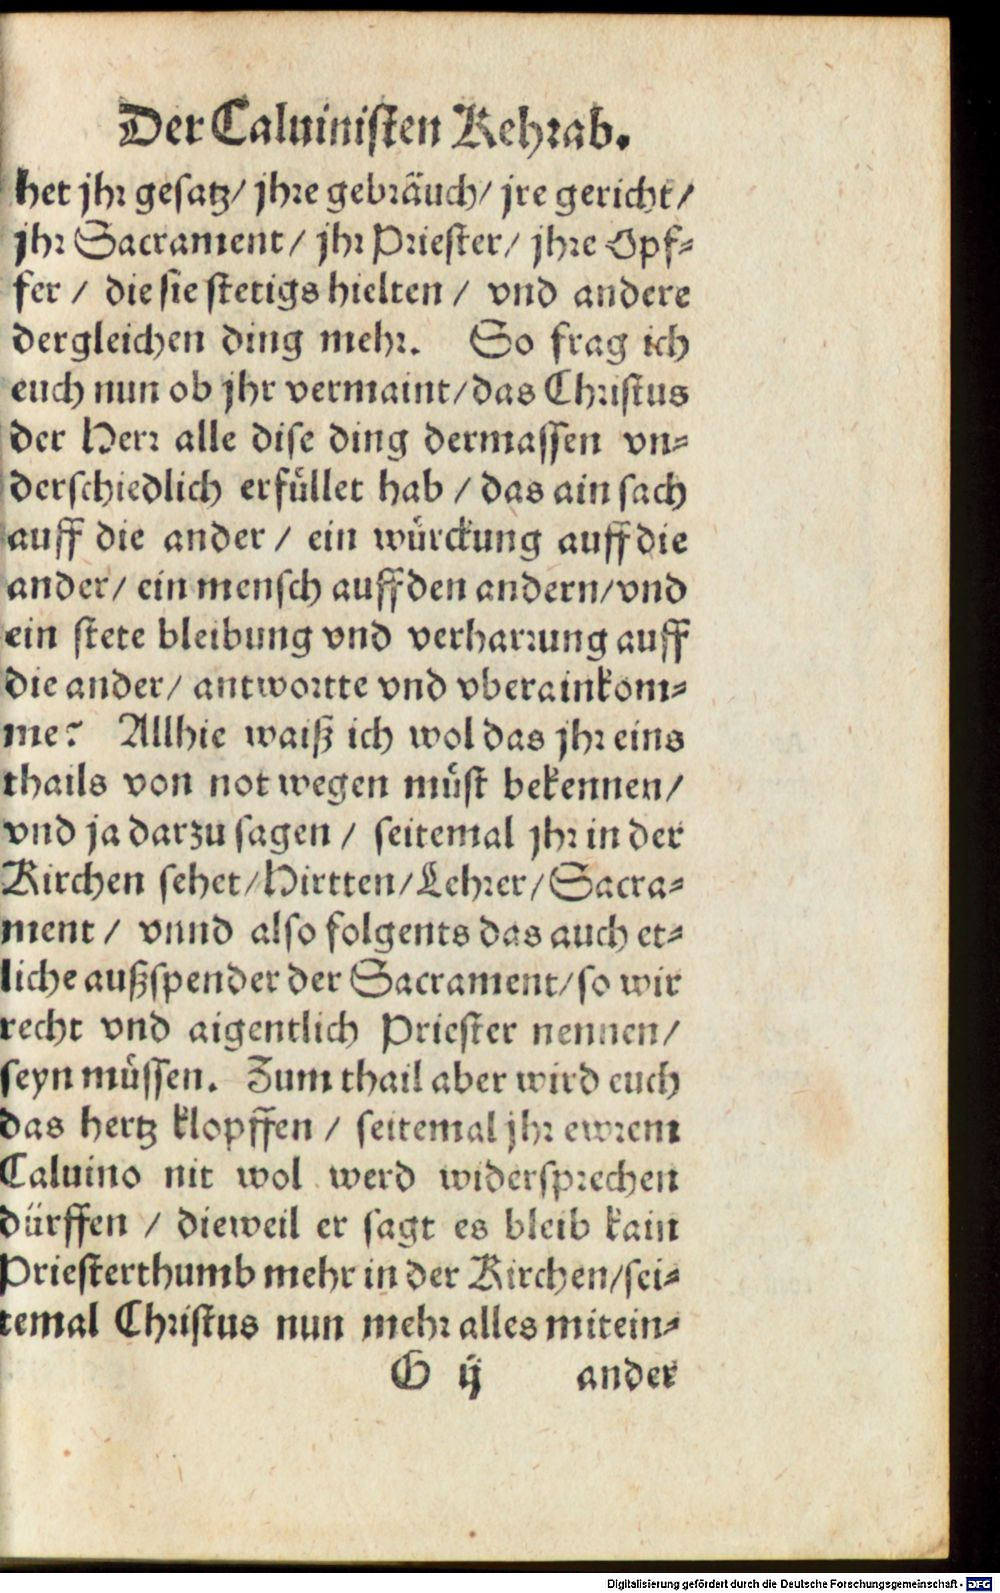 Der Caluinisten Kehrab.
het jhr gesatz/ jhre gebräuch/ jre gericht/
jhr Sacrament/ jhr Priester/ jhre Opf-
fer / die sie stetigs hielten / vnd andere
dergleichen ding mehr. So frag ich
euch nun ob jhr vermaint/das Christus
der Herr alle dise ding dermassen vn-
derschiedlich erfüllet hab / das ain sach
auff die ander / ein würckung auff die
ander/ ein mensch auff den andern/vnd
ein stete bleibung vnd verharrung auff
die ander/ antwortte vnd vberainkom-
me? Allhie waiß ich wol das jhr eins
thails von not wegen müst bekennen/
vnd ja darzu sagen / seitemal jhr in der
Kirchen sehet/Hirtten/Lehrer/Sacra-
ment / vnnd also folgents das auch et-
liche außspender der Sacrament/so wir
recht vnd aigentlich Priester nennen/
seyn müssen. Zum thail aber wird euch
das hertz klopffen / seitemal jhr ewrem
Caluino nit wol werd widersprechen
dürffen / dieweil er sagt es bleib kain
Priesterthumb mehr in der Kirchen/sei-
temal Christus nun mehr alles mitein-
G ij ander
Digitalisierung gefördert durch die Deutsche Forschungsgemeinschaft - DFG